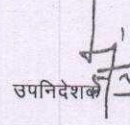 उपनिदेशक